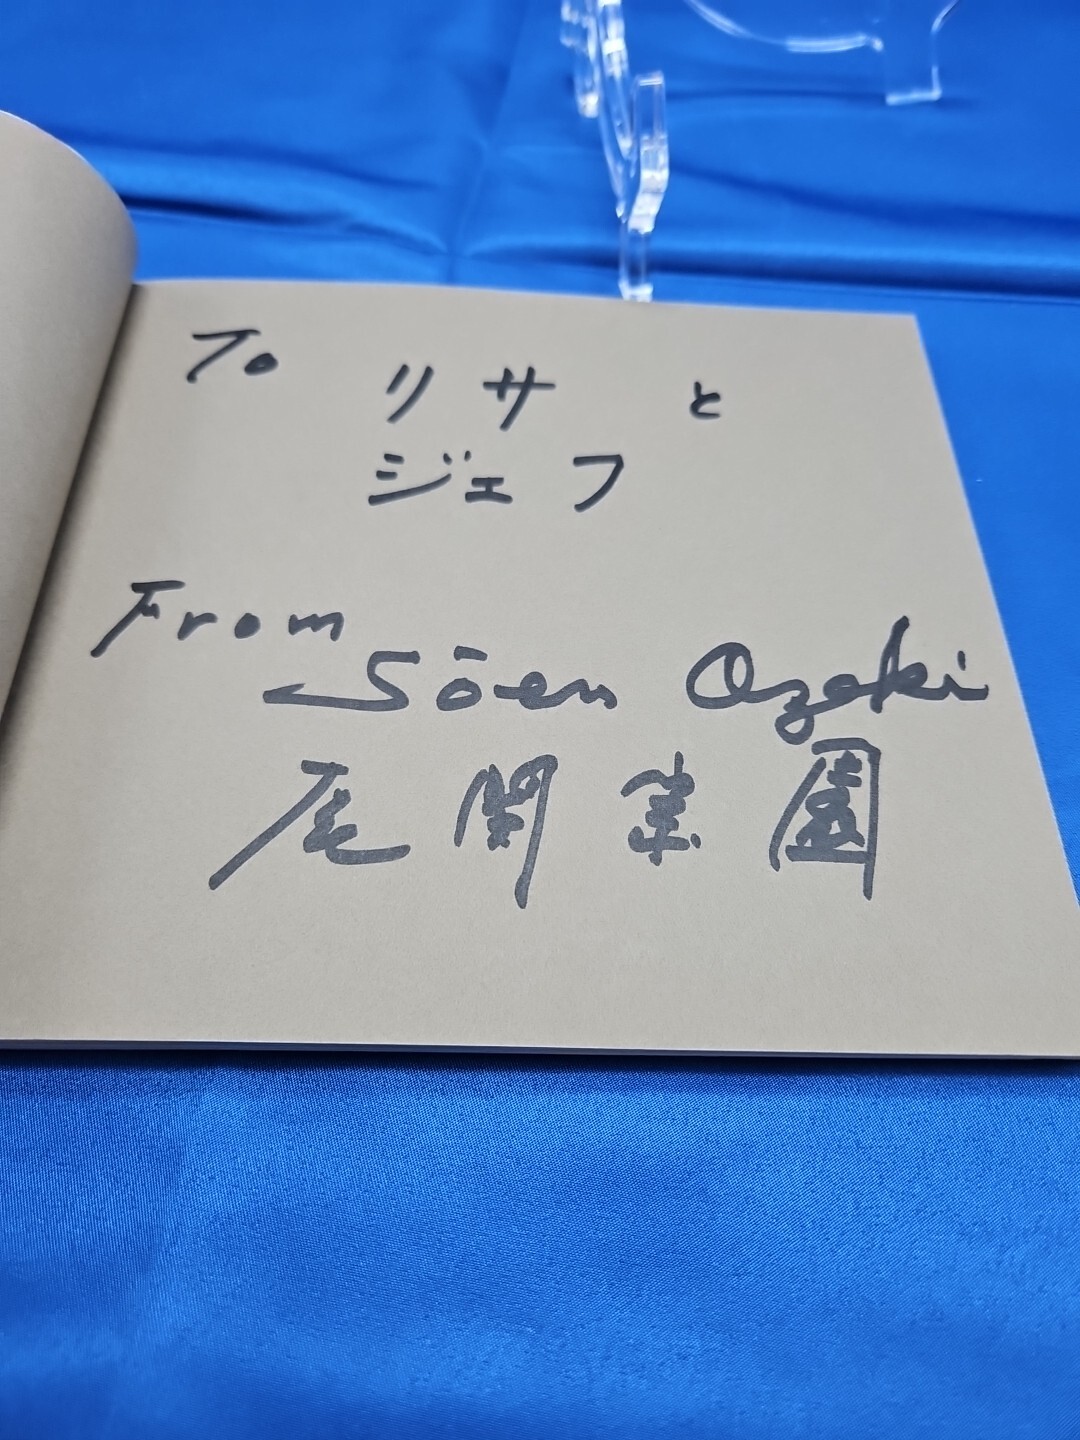 To リサ と
ジェフ
From
Sōen Ozeki
尾関宗園